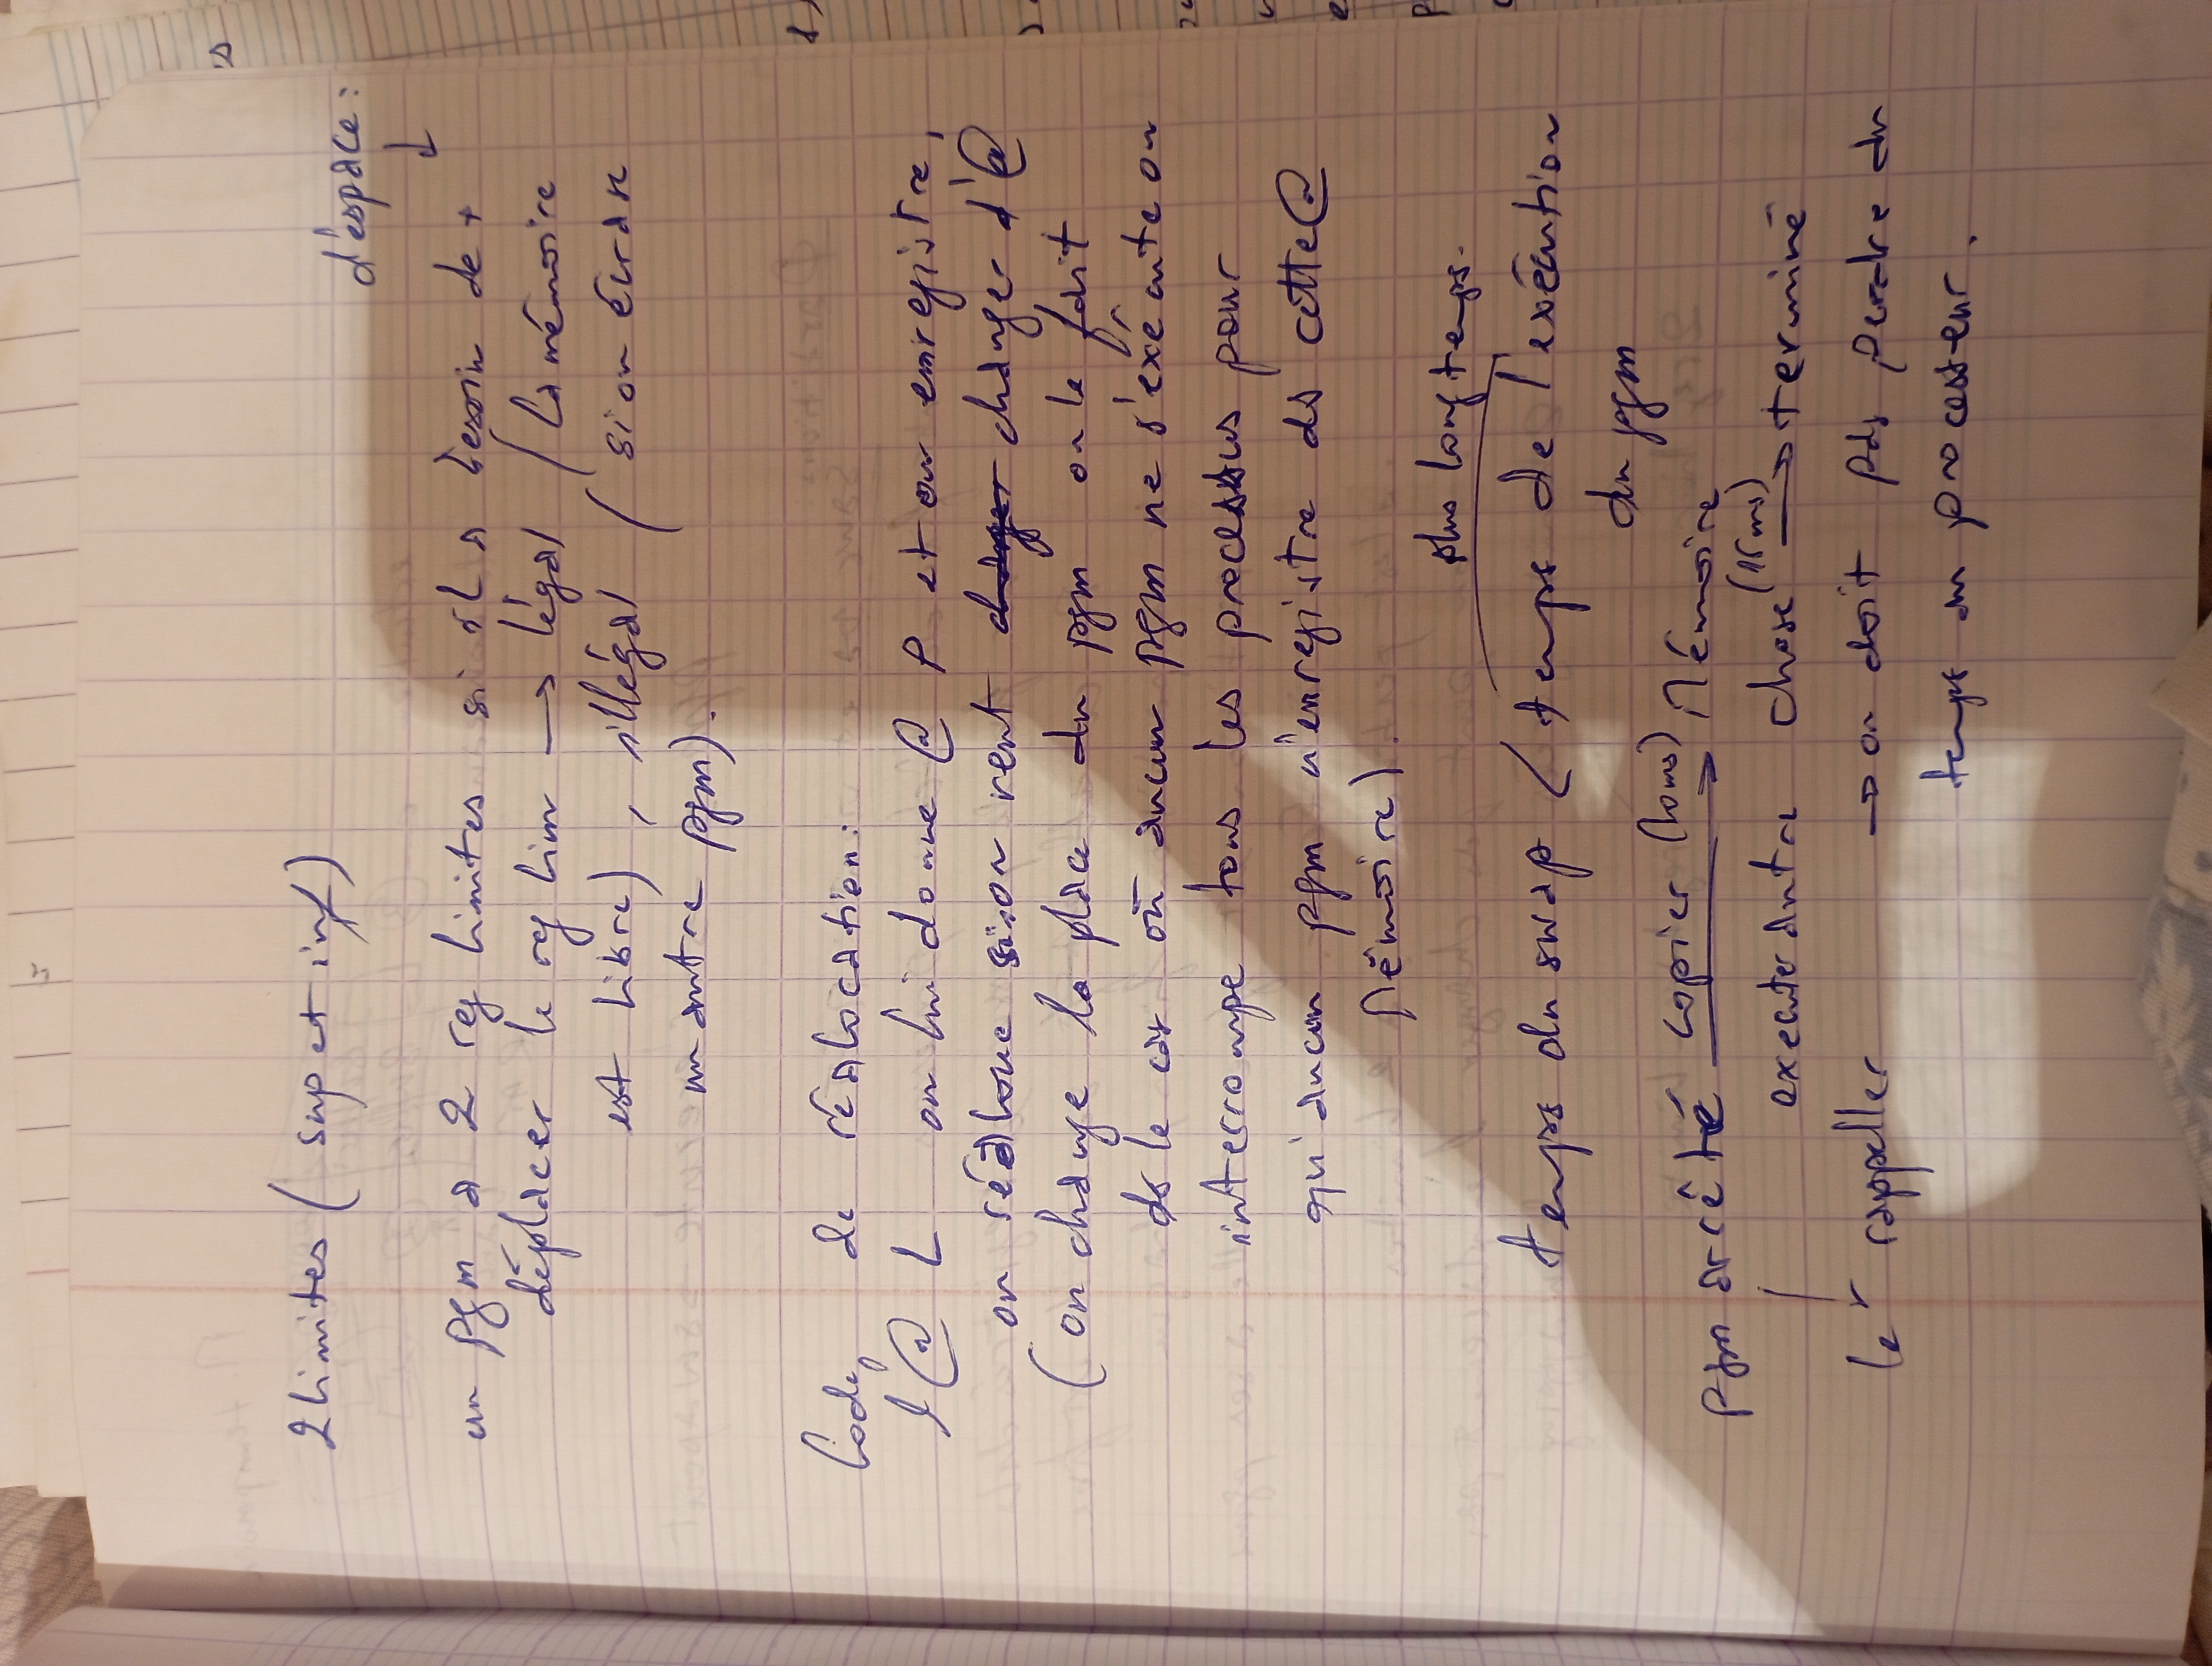 2 limites (sup et inf)
d'espace:
un pgm a 2 reg limites si il a besoin de +
déplacer le reg lim → légal (la mémoire
est libre), illégal (si on écrase
un autre pgm).
Code de réalocation:
@ L on lui donne @ P et on enregistre,
on réalloue si on veut changer d'@
(on change la place du pgm on le fait
ds le cas où aucun pgm ne s'exécute on
interrompe tous les processus pour
qu'aucun pgm n'enregistre ds cette @
Mémoire).
plus longtemps.
temps du swap < temps de l'exécution
du pgm
pgm arrêté copier (10ms) → Mémoire
executer autre chose (15ms) → terminé
le rappeller → on doit pas perdre du
temps du processeur.